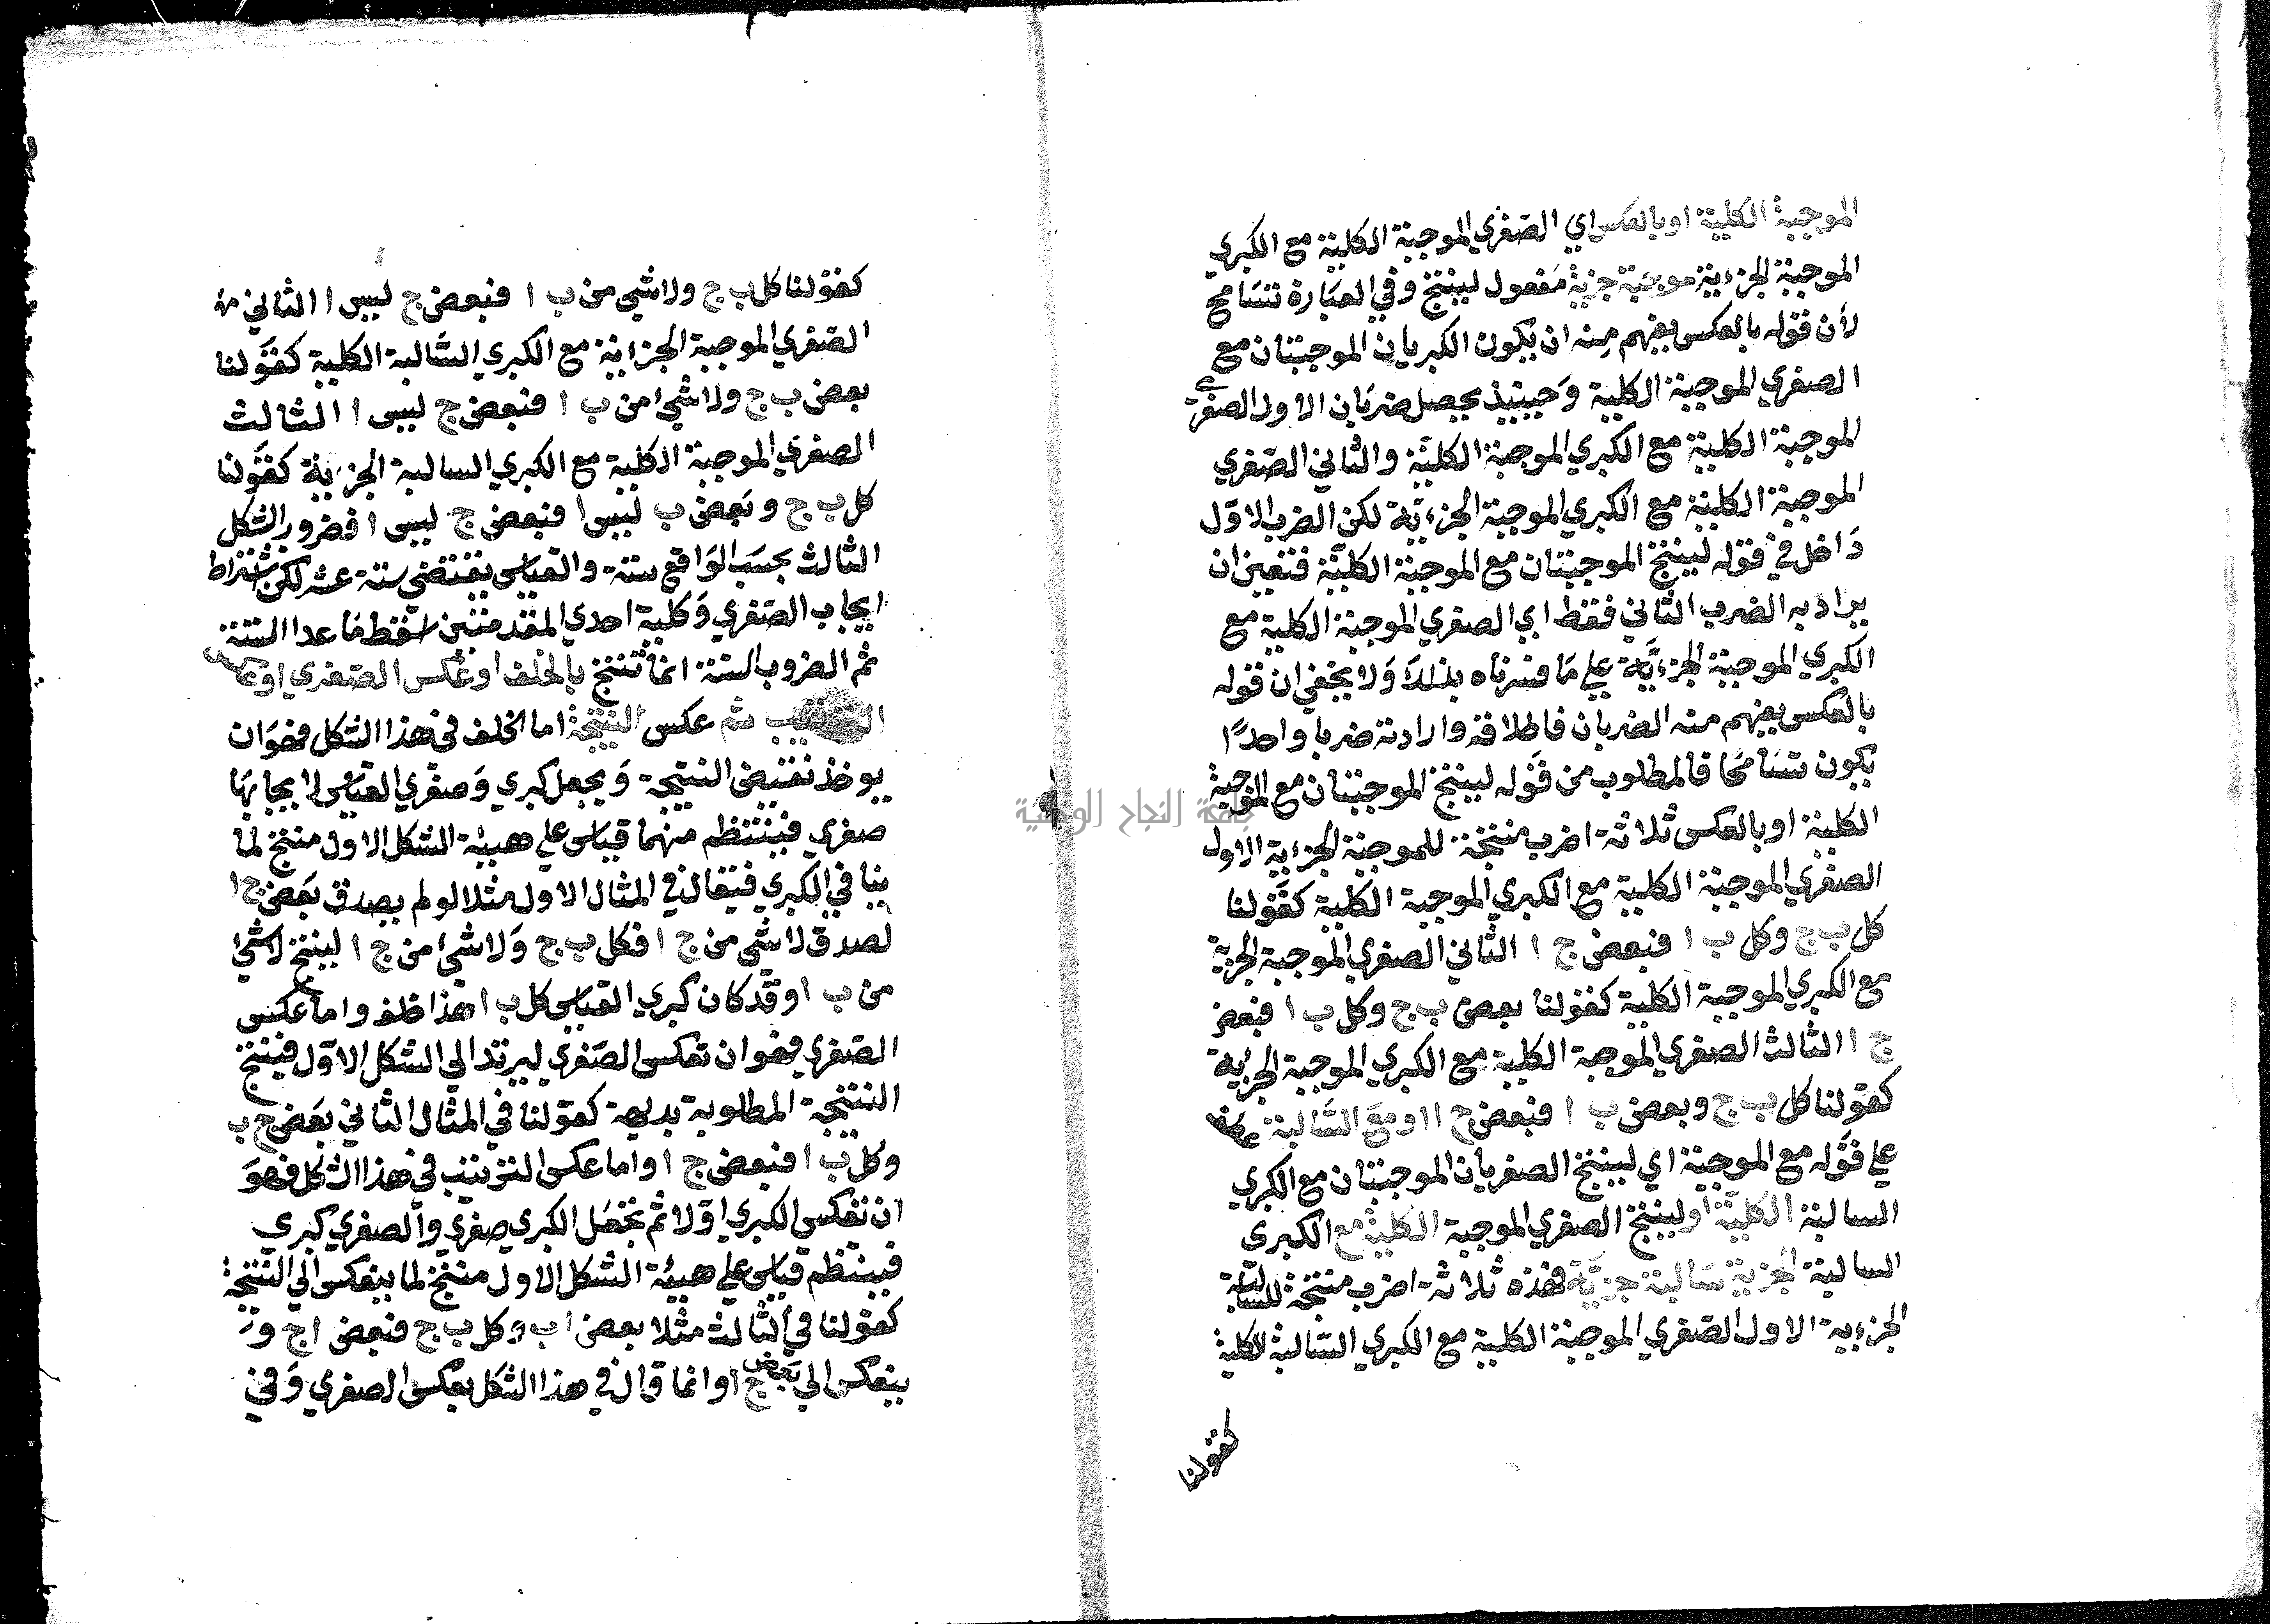 الموجبة الكلية او بالعكس اي الصغري الموجبة الكلية مع الكبري
الموجبة الجزءية موجبة جزية مفعول لينتج وفي العبارة تسامح
لأن قوله بالعكس يفهم منه ان يكون الكبريان الموجبتان مع
الصغري الموجبة الكلية وحينيذ يحصل ضربان الاول الصغري
الموجبة الكلية مع الكبري الموجبة الكلية والثاني الصغري
الموجبة الكلية مع الكبري الموجبة الجزءية لكن الضرب الاول
داخل في قوله لينتج الموجبتان مع الموجبة الكلية فتعين ان
يراد به الضرب الثاني فقط اي الصغري الموجبة الكلية مع
الكبري الموجبة الجزءية علي ما فسرناه بذلك ولا يخفي ان قوله
بالعكس يفهم منه الضربان فاطلاقه وارادته ضربا واحدًا
يكون تسامحا فالمطلوب من قوله لينتج الموجبتان مع الموجبة
جامعة النجاح الوطنية
الكلية او بالعكس ثلاثة اضرب منتجة للموجبة الجزءية الاول
الصغري الموجبة الكلية مع الكبري الموجبة الكلية كقولنا
كل ب ج وكل ب ا فبعض ج ا الثاني الصغري الموجبة الجزية
مع الكبري الموجبة الكلية كقولنا بعض ب ج وكل ب ا فبعض
ج ا الثالث الصغري الموجبة الكلية مع الكبري الموجبة الجزئية
كقولنا كل ب ج وبعض ب ا فبعض ج ا او مع السالبة عطف
علي قوله مع الموجبة اي لينتج الصغريان الموجبتان مع الكبري
السالبة الكلية او لينتج الصغري الموجبة الكلية مع الكبرى
السالبة الجزية سالبة جزية فهذه ثلاثة اضرب منتجة للسالبة
الجزءية الاول الصغري الموجبة الكلية مع الكبري السالبة الكلية
كقولنا
كقولنا كل ب ج ولا شي من ب ا فبعض ج ليس ا الثاني من
الصغري الموجبة الجزاية مع الكبري السالبة الكلية كقولنا
بعض ب ج ولا شيء من ب ا فبعض ج ليس ا الثالث
الصغري الموجبة الكلية مع الكبري السالبة الجزءية كقولنا
كل ب ج وبعض ب ليس ا فبعض ج ليس ا فضروب الشكل
الثالث بحسب الواقع ستة والقياس يقتضي ستة عشر لكن اشتراط
ايجاب الصغري وكلية احدي المقدمتين اسقط ما عدا الستة
ثم الضروب الستة انما تنتج بالخلف او عكس الصغري او عكس
الترتيب ثم عكس النتيجة اما الخلف في هذا الشكل فهو ان
يوخذ نقيض النتيجة ويجعل كبري وصغري القياس لايجابها
صغري فينتظم منهما قياس علي هيئة الشكل الاول منتج لما
ينافي الكبري فيقال في المثال الاول مثلا لو لم يصدق بعض ج ا
لصدق لا شي من ج ا فكل ب ج ولا شيء من ج ا لينتج لا شيء
من ب ا وقد كان كبري القياس كل ب ا هذا خلف واما عكس
الصغري فهو ان تعكس الصغري ليرتد الي الشكل الاول فينتج
النتيجة المطلوبة بديهة كقولنا في المثال الثاني بعض ج ب
وكل ب ا فبعض ج ا واما عكس الترتيب في هذا الشكل فهو
ان تعكس الكبري اولا ثم تجعل الكبري صغري والصغري كبري
فينتظم قياس علي هيئة الشكل الاول منتج لما ينعكس الي النتيجة
كقولنا في الثالث مثلا بعض ا ب وكل ب ج فبعض ا ج و
ينعكس الي بعض ج ا وانما قال في هذا الشكل بعكس الصغري وفي